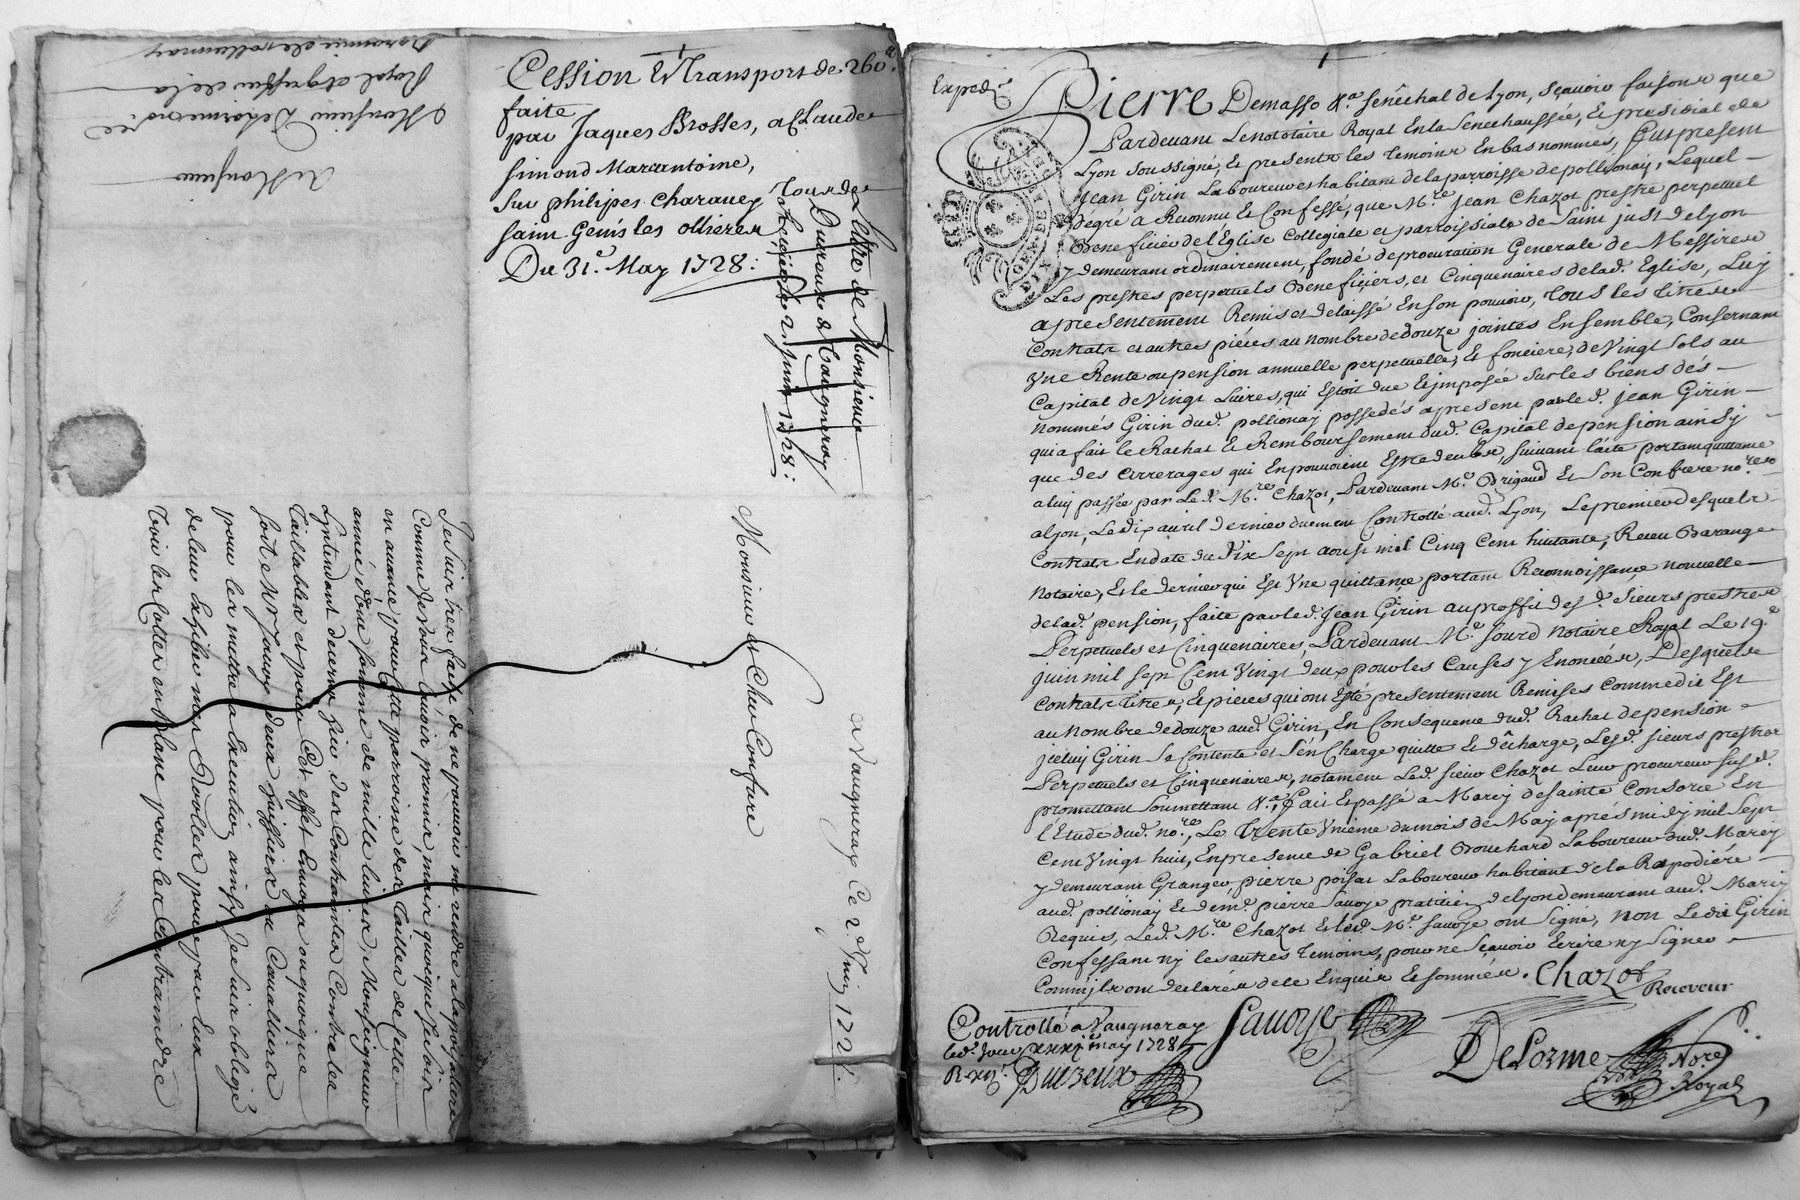 Cession Et Transport de 260#
faite
par Jaques Brosses, a Claude
simond Marcantoine,
sur philipes Charavey
saint Genis les ollieres
Du 31e. May 1728:
Lettre de Monsieur
Duzeux de Vaugneray
1728:
A Monsieur
Monsieur Delorme no.re
Royal et greffier de la
Baronnie de pollionnay
a Vaugneray Ce 2e Juin 1728.
Monsieur et Cher Confrere
Je suis bien faché de ne pouvoir me rendre a la
Comme Je vous l'avois promis, mais quoique Je sois
en avance pour Cette parroisse des tailles de Cette
année d'une somme de mille livres, Monseigneur
Lyntendant decerna hier des Contraintes Contre les
Taillables et pour Cet effet Envoya
soit a Mr Jauvy deux huissiers ou Cavaliers
pour les mettre a Execution, ainsy Je suis obligé
de leur Expedier mes Roolles pour par eux
voir les Cottes en plane pour les Contraindre
Exped.é
Pierre Demasso &.a senêchal de Lyon, sçavoir faisons que
Pardevant Le Nottaire Royal En la Senechaussée, Et presidial de
Lyon soussigné, Et presents les temoins En bas nommés, fut present
Jean Girin Laboureur et habitant de la parroisse de pollionay, Lequel
degré a Reconnu Et Confessé, que M.re Jean Chazot prestre perpetuel
Beneficier de l'Eglise Collegiale et parroissiale de Saint just de Lyon
y demeurant ordinairement, fondé de procuration Generale de Messires
Les prestres perpetuels Beneficiers, et Cinquenaires de lad. Eglise, Luy
a presentement Remis et delaissé En son pouvoir, tous les titres
Contrats et autres pièces au nombre de douze jointes Ensemble, Consernant
Une Rente ou pension annuelle perpetuelle, Et fonciere, de Vingt sols au
Capital de Vingt Livres, qui Estoit due Et imposée sur les biens des
nommés Girin dud. pollionay possedés apresent par led. Jean Girin
qui a fait le Rachat Et Remboursement dud. Capital de pension ainsy
que des arrerages qui En pouvoient Estre deubs, suivant l'acte portant quittance
a luy passée par Led. M.re Chazot, Pardevant M.e Brigaud Et son Confrere no.res
a Lyon, Le dix avril dernier duement Controllé aud. Lyon, Le premier desquels
Contrats En date du Dix sept aoust mil Cinq Cent huitante, Receu Barange
Notaire, Et le dernier qui Est Une quittance portant Reconnoissance nouvelle
de lad. pension, faite par led. Jean Girin au proffit desd. sieurs prestres
Perpetuels et Cinquenaires, Pardevant M.e Jourd Notaire Royal Le 19.e
juin mil sept Cent Vingt deux pour les Causes y Enoncées, Desquels
Contrats titres, Et pieces qui ont Esté presentement Remises comme dit Est
au nombre de douze aud. Girin, En Consequence dud. Rachat de pension
jceluy Girin se Contente et s'en Charge quitte Et décharge, Lesd. sieurs prestres
Perpetuels et Cinquenaires, notament Led. sieur Chazot Leur procureur susd.
promettant soumettant &.a, fait Et passé a Marcy de sainte Consorce En
l'Etude dud. no.re, Le trente Unième du mois de May après midy mil sept
Cent Vingt huit, En presence de Gabriel Bouchard Laboureur dud. Marcy
y demeurant Granger, pierre poisat Laboureur habitant de la Rapodiére
aud. pollionay Et de m.e pierre Savoye pratitien de lyon demeurant aud. Marcy
Requis, Led. M.re Chazot Et led. M.e Savoye ont signé, non Ledit Girin
Confessant ny les autres temoins, pour ne sçavoir Ecrire ny signer
Comm'jls ont declarés de ce Enquis Et sommés. Chazot
Receveur
Controllé a Vaugneray
led. jour xxxje may 1728
R. xijs. Duzeux
Savoye
Delorme No.re
Royal